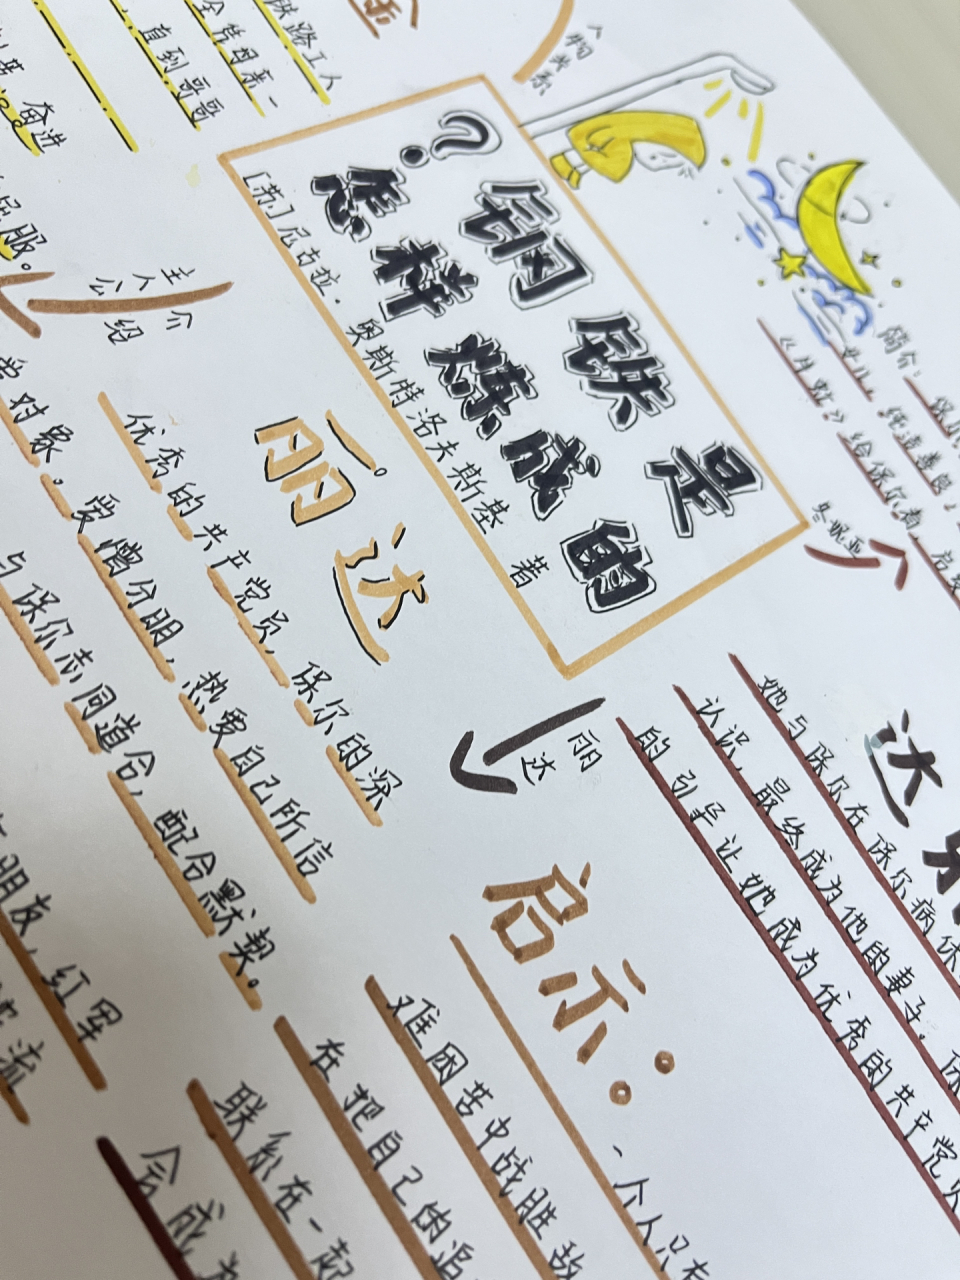 铁路工人
全靠母亲一
直到哥哥
奋进
屈服。
主人公
介绍
人物关系
钢铁是
怎样炼成的
?
[苏]尼古拉.奥斯特洛夫斯基 著
简介:
《牛虻》给保尔看,启
冬妮亚
丽达
优秀的共产党员,保尔的深
爱憎分明,热爱自己所信
与保尔志同道合,配合默契。
对象。
朋友,红军
流
丽达
达
她与保尔在保尔病休
认识,最终成为他的妻子。保
的引导让她成为优秀的共产党员
启示:
一个人只有
难困苦中战胜故
在把自己的追
联系在一起
会成为